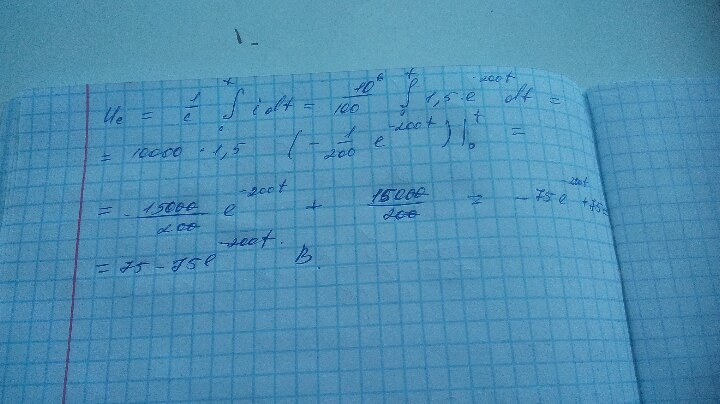 U_c = 1/c ∫₀ᵗ i dt = 10⁶/100 ∫₀ᵗ 1,5 e^{-200t} dt =
= 10000 · 1,5 (- 1/200 e^{-200t}) |₀ᵗ =
= - 15000/200 e^{-200t} + 15000/200 = - 75 e^{-200t} + 75 =
= 75 - 75 e^{-200t}. В.